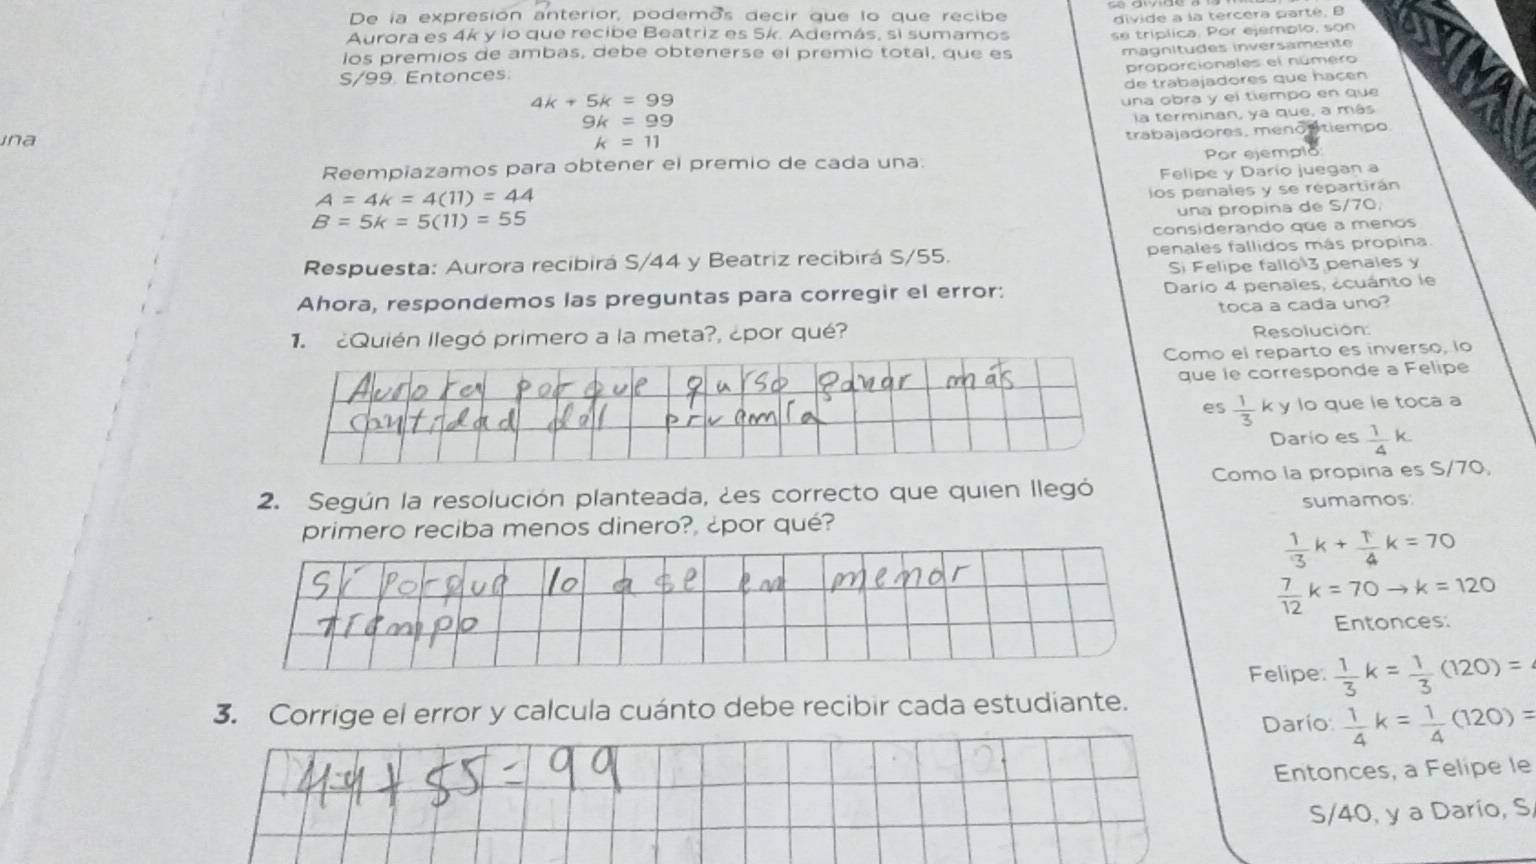 De la expresión anterior, podemos decir que lo que recibe
Aurora es 4k y lo que recibe Beatriz es 5k. Además, si sumamos
los premios de ambas, debe obtenerse el premio total, que es
S/99. Entonces:
4k + 5k = 99
9k = 99
k = 11
Reemplazamos para obtener el premio de cada una:
A = 4k = 4(11) = 44
B = 5k = 5(11) = 55
Respuesta: Aurora recibirá S/44 y Beatriz recibirá S/55.
Ahora, respondemos las preguntas para corregir el error:
1. ¿Quién llegó primero a la meta?, ¿por qué?
porque más
cantidad del
2. Según la resolución planteada, ¿es correcto que quien llegó
primero reciba menos dinero?, ¿por qué?
Si porque lo en menor
3. Corrige el error y calcula cuánto debe recibir cada estudiante.
44 + 55 = 99
una
divide a la tercera parte, B
se triplica. Por ejemplo, son
magnitudes inversamente
proporcionales el número
de trabajadores que hacen
una obra y el tiempo en que
la terminan, ya que, a más
trabajadores, menos tiempo.
Por ejemplo:
Felipe y Darío juegan a
los penales y se repartirán
una propina de S/70,
considerando que a menos
penales fallidos más propina.
Si Felipe falló 3 penales y
Darío 4 penales, ¿cuánto le
toca a cada uno?
Resolución:
Como el reparto es inverso, lo
que le corresponde a Felipe
es 1/3 k y lo que le toca a
Darío es 1/4 k.
Como la propina es S/70,
sumamos:
1/3 k + 1/4 k = 70
7/12 k = 70 → k = 120
Entonces:
Felipe: 1/3 k = 1/3 (120) =
Darío: 1/4 k = 1/4 (120) =
Entonces, a Felipe le
S/40, y a Darío, S/